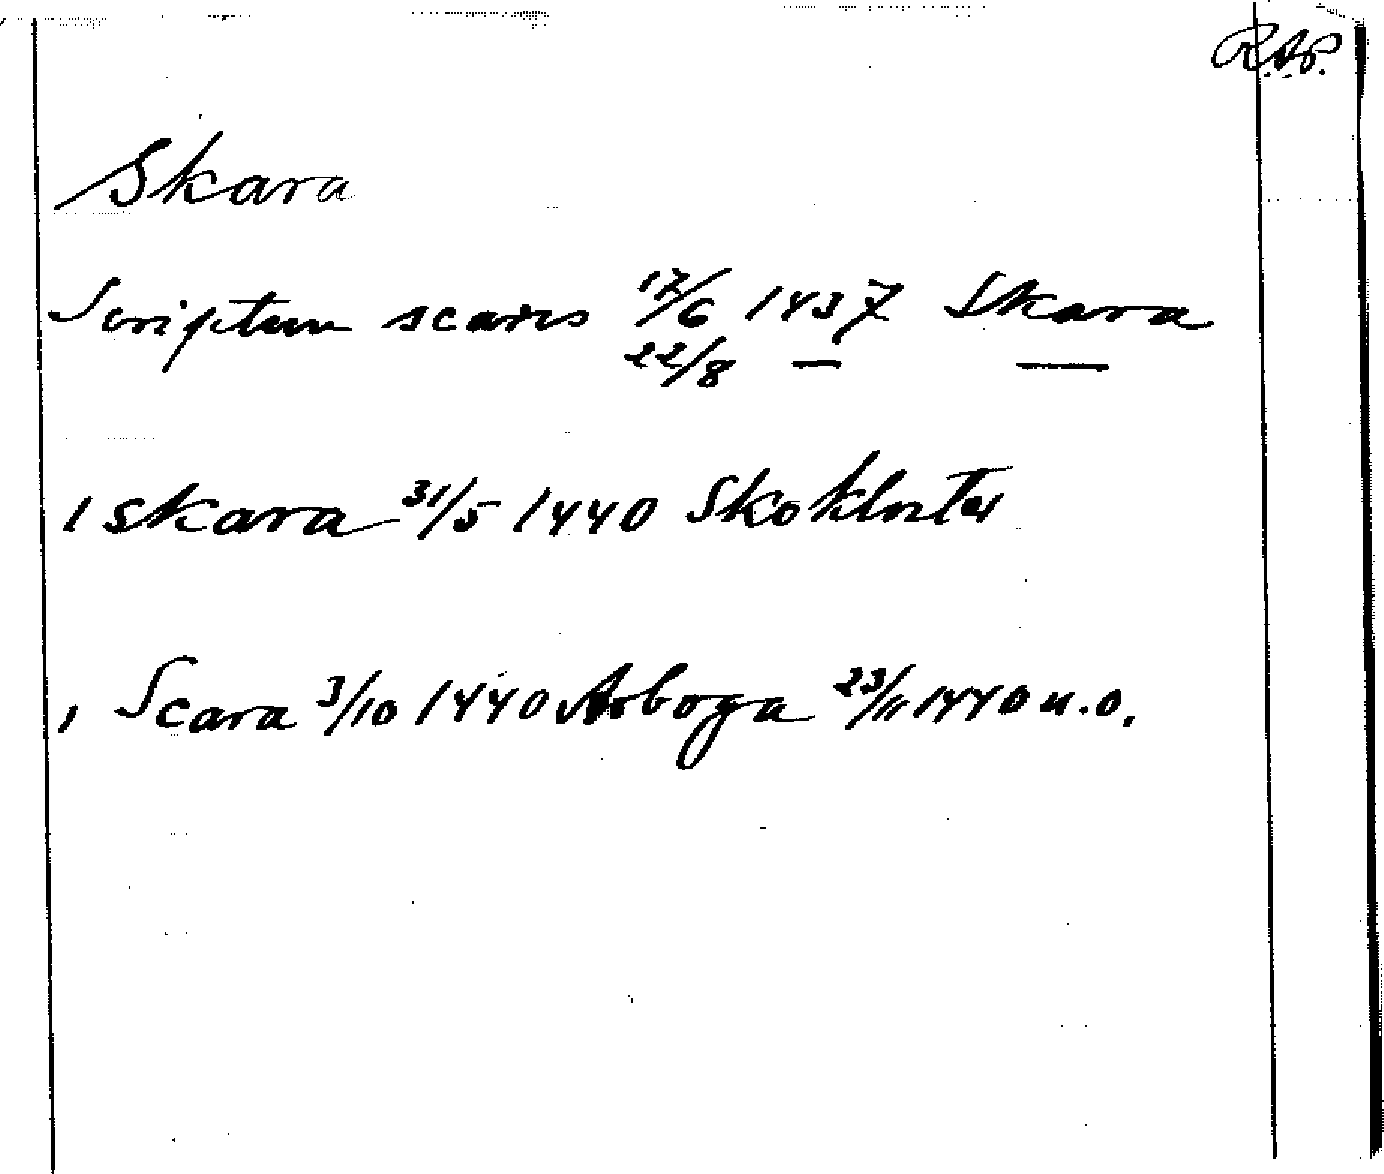 R.A.P.
Skara
Scriptum scaris 17/6 1437 Skara
22/8 — —
I skara 31/5 1440 Skokloster
I Scara 3/10 1440 Arboga 23/11 1440 u.o.